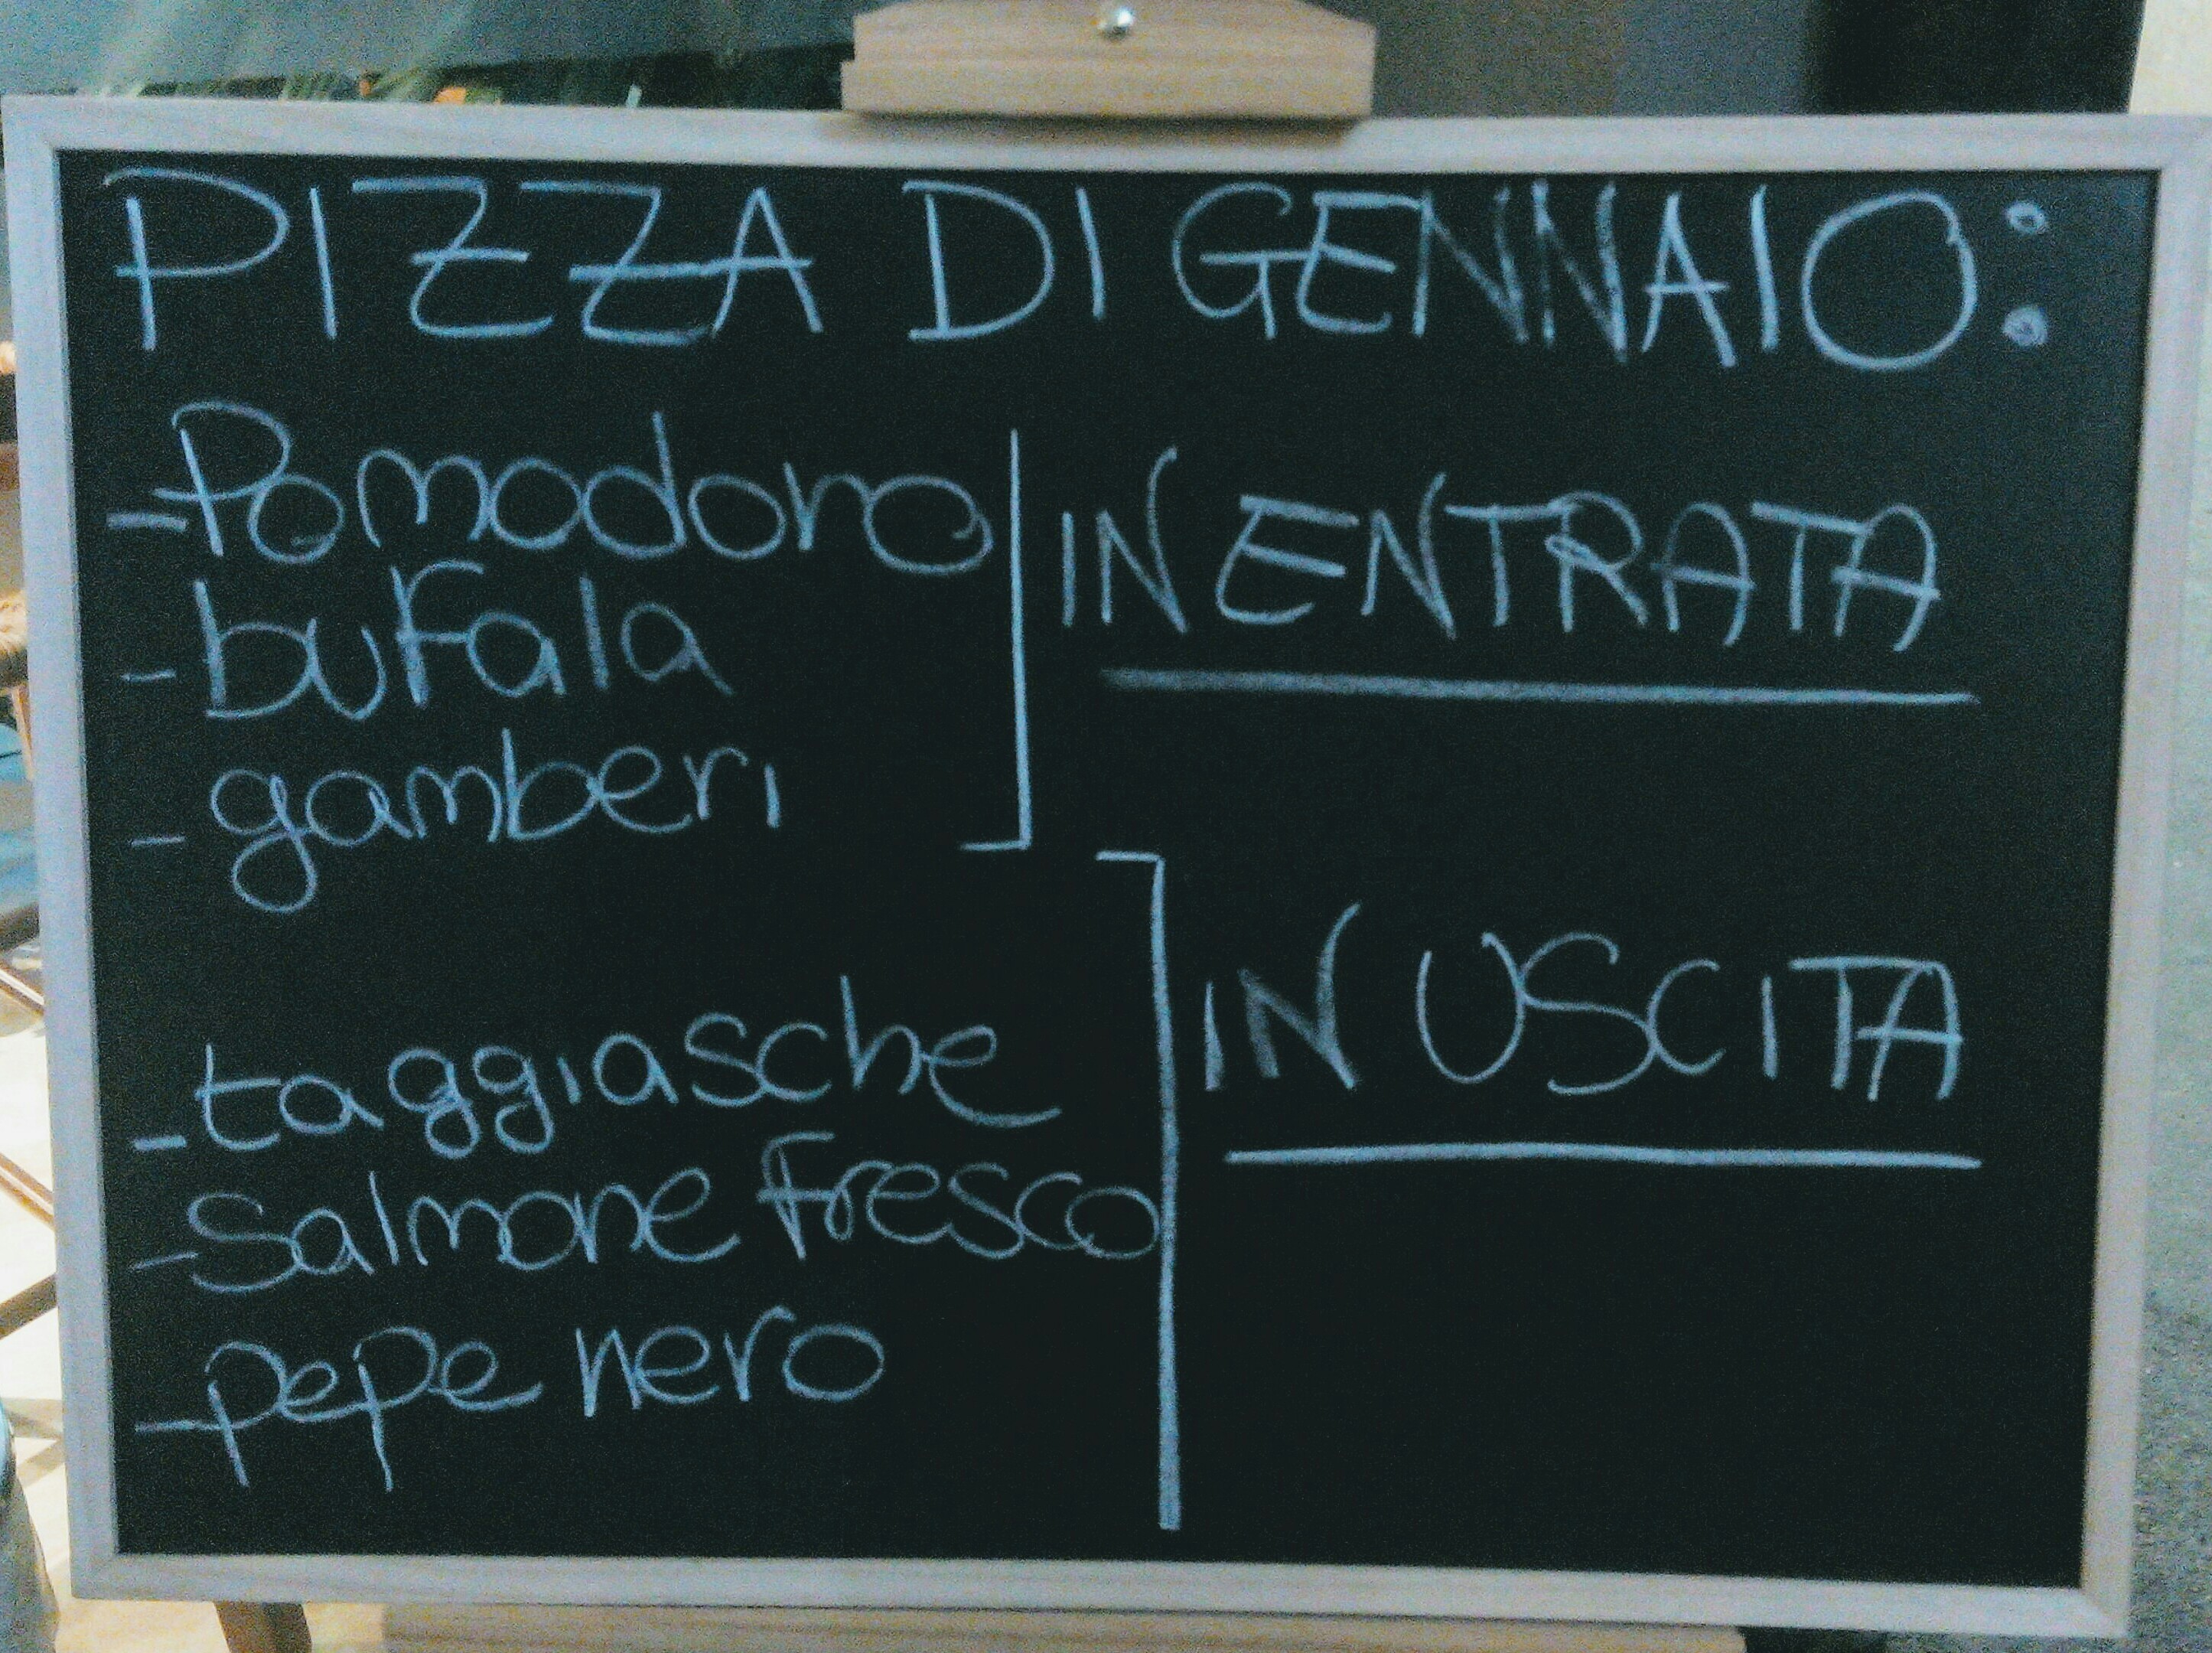 PIZZA DI GENNAIO:
- Pomodoro
- bufala
- gamberi
IN ENTRATA
- taggiasche
- Salmone fresco
- pepe nero
IN USCITA